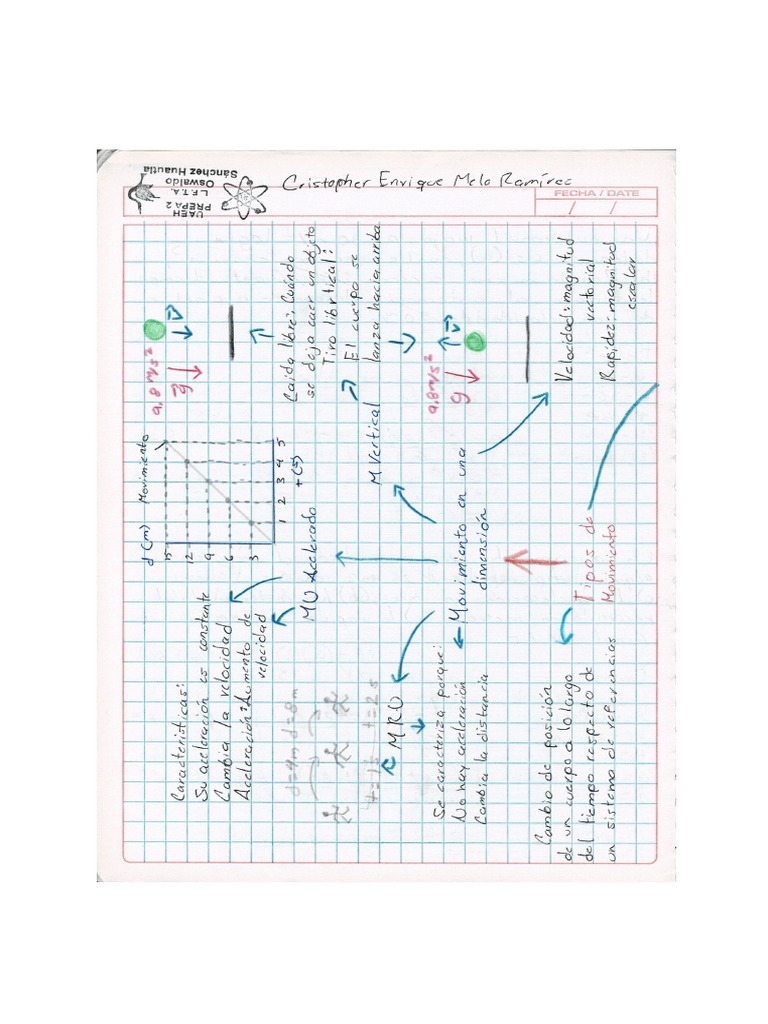 UAEH
PREPA 2
L.F.T.A.
Oswaldo
Sánchez Huautla
Cristopher Enrique Melo Ramírez
FECHA / DATE
/ /
Tipos de
Movimiento
Cambio de posición
de un cuerpo a lo largo
del tiempo respecto de
un sistema de referencias
Velocidad: magnitud
vectorial
Rapidez: magnitud
escalar
Movimiento en una
dimensión
MRU
Se caracteriza porque:
No hay aceleración
Cambia la distancia
d=4m d=8m
t=1s t=2s
MU Acelerado
Características:
Su aceleración es constante
Cambia la velocidad
Aceleración: Aumento de
velocidad
d (m) Movimiento
15
12
9
6
3
1 2 3 4 5
t (s)
M. Vertical
Caida libre: Cuándo
se deja caer un objeto
Tiro librtical:
El cuerpo se
lanza hacia arriba
9.8 m/s²
g
v
9.8 m/s²
g
v